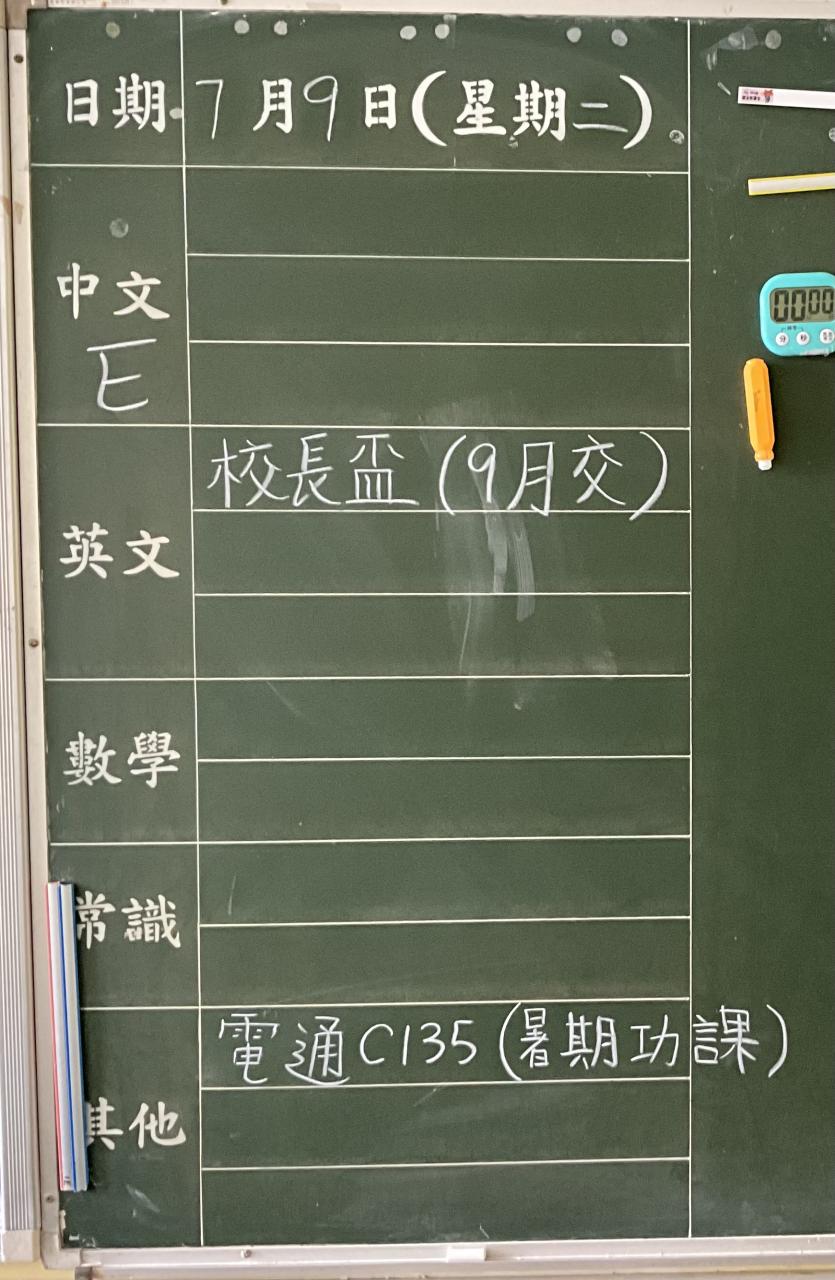 日期 7月9日(星期二)
中文
E
英文 校長盃(9月交)
數學
常識
其他 電通C135(暑期功課)
00:00
分 秒